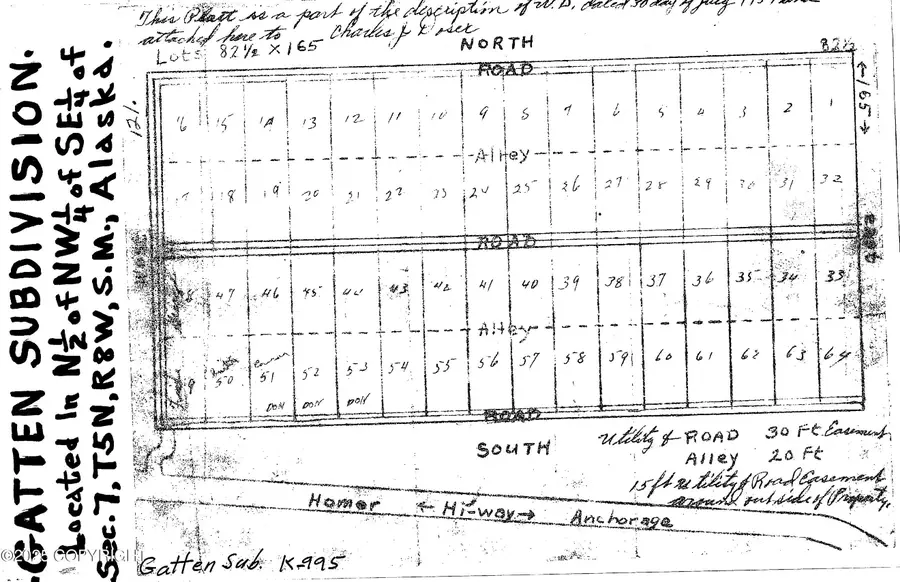 This Platt is a part of the description of W.D. dated 30 day of July
attached here to Charles J.
Lots 82½ X 165
NORTH
82½
GATTEN SUBDIVISION.
Located In N½ of NW¼ of SE¼ of
Sec. 7, T5N, R8W, S.M., Alaska.
ROAD
←165→
15 14 13 12 11 10 9 8 7 6 5 4 3 2 1
Alley
18 19 20 21 22 23 24 25 26 27 28 29 30 31 32
ROAD
ROAD
47 46 45 44 43 42 41 40 39 38 37 36 35 34 33
Alley
50 51 52 53 54 55 56 57 58 59 60 61 62 63 64
DON DON DON
ROAD
SOUTH
Utility & ROAD 30 Ft Easement
Alley 20 Ft
15 ft Utility & Road Easement
around outside of Property.
Homer ← Hi-way → Anchorage
Gatten Sub. K995